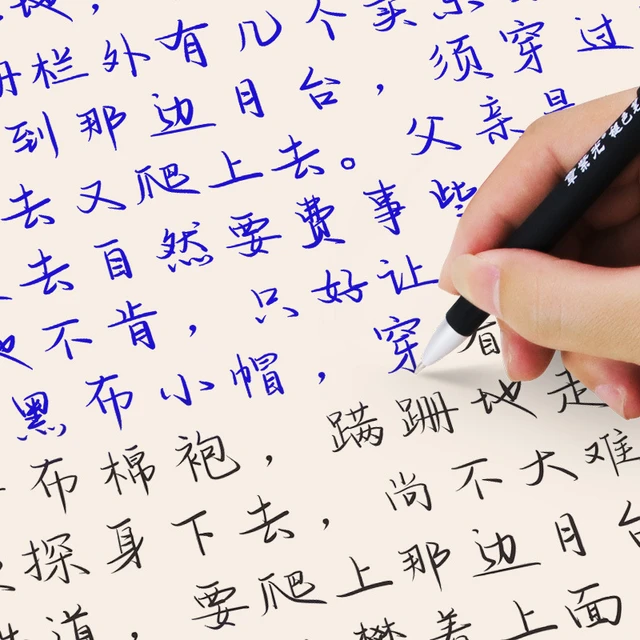 栏外有几个卖
到那边月台，须穿过
去又爬上去。父亲是
去自然要费事些
不肯，只好让
黑布小帽，穿着
布棉袍，蹒跚地走
探身下去，尚不大难
道，要爬上那边月台
攀着上面